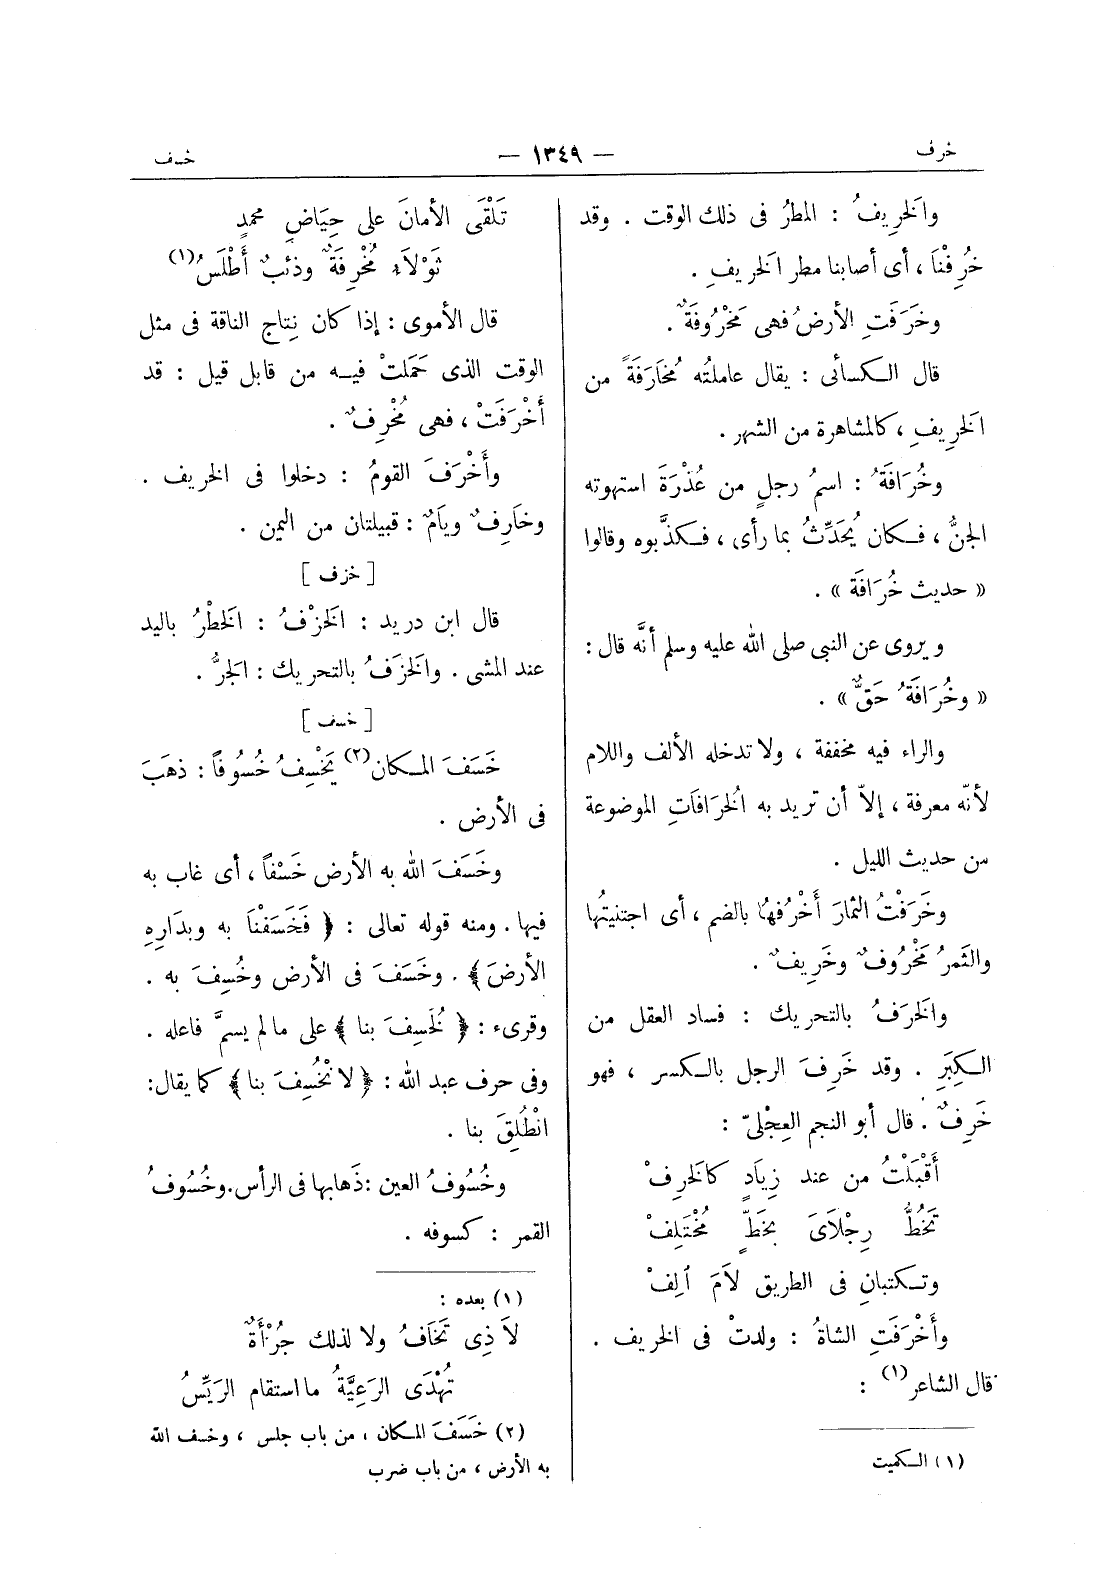 خرف
— ١٣٤٩ —
خسف
والخَرِيفُ : المطرُ فى ذلك الوقت . وقد
خُرِفْنَا ، أى أصابنا مطر الخريفِ .
وخَرَفَتِ الأرضُ فهى مَخْرُوفَةٌ .
قال الكسائى : يقال عاملتُه مُخَارَفَةً من
الخَرِيفِ ، كالمشاهرة من الشهر .
وخُرَافَةُ : اسمُ رجلٍ من عُذْرَةَ استهوته
الجنُّ ، فكان يُحَدِّثُ بما رأى ، فكذَّبوه وقالوا
« حديث خُرَافَة » .
ويروى عن النبى صلى الله عليه وسلم أنَّه قال :
« وخُرَافَةُ حَقٌّ » .
والراء فيه مخففة ، ولا تدخله الألف واللام
لأنّه معرفة ، إلاّ أن تريد به الخُرَافَاتِ الموضوعة
من حديث الليل .
وخَرَفْتُ الثمارَ أَخْرُفُهَا بالضم ، أى اجتنيتُها
والثَمرُ مَخْرُوفٌ وخَرِيفٌ .
والخَرَفُ بالتحريك : فساد العقل من
الكِبَرِ . وقد خَرِفَ الرجل بالكسر ، فهو
خَرِفٌ . قال أبو النجم العِجْلىّ :
أَقْبَلْتُ من عند زِيَادٍ كالخَرِفْ
تَخُطُّ رِجْلَاىَ بخَطٍّ مُخْتَلِفْ
وتكتبانِ فى الطريق لَامَ اَلِفْ
وأَخْرَفَتِ الشاةُ : ولدتْ فى الخريف .
قال الشاعر(١) :
(١) الكميت
تَلْقَى الأمانَ على حِيَاضِ محمدٍ
ثَوْلَاءُ مُخْرِفَةٌ وذئبٌ أَطْلَسُ(١)
قال الأموى : إذا كان نِتاج الناقة فى مثل
الوقت الذى حَمَلتْ فيه من قابل قيل : قد
أَخْرَفَتْ ، فهى مُخْرِفٌ .
وأَخْرَفَ القومُ : دخلوا فى الخريف .
وخَارِفٌ ويَامٌ : قبيلتان من اليمن .
[ خزف ]
قال ابن دريد : الخَزْفُ : الخَطْرُ باليد
عند المشى . والخَزَفُ بالتحريك : الجَرُّ .
[ خسف ]
خَسَفَ المكان(٢) يَخْسِفُ خُسُوفًا : ذهَبَ
فى الأرض .
وخَسَفَ الله به الأرض خَسْفًا ، أى غاب به
فيها . ومنه قوله تعالى : ﴿ فَخَسَفْنَا به وبدَارِهِ
الأرضَ ﴾ . وخَسَفَ فى الأرض وخُسِفَ به .
وقرىء : ﴿ لَخُسِفَ بنا ﴾ على ما لم يسمَّ فاعله .
وفى حرف عبد الله : ﴿ لانْخُسِفَ بنا ﴾ كما يقال:
انْطُلِقَ بنا .
وخُسُوفُ العين : ذَهابها فى الرأس. وخُسُوفُ
القمر : كسوفه .
(١) بعده :
لاَ ذِى تَخَافُ ولا لذلك جُرْأَةٌ
تُهْدَى الرَعِيَّةُ ما استقام الرَيِّسُ
(٢) خَسَفَ المكان ، من باب جلس ، وخسف الله
به الأرض ، من باب ضرب